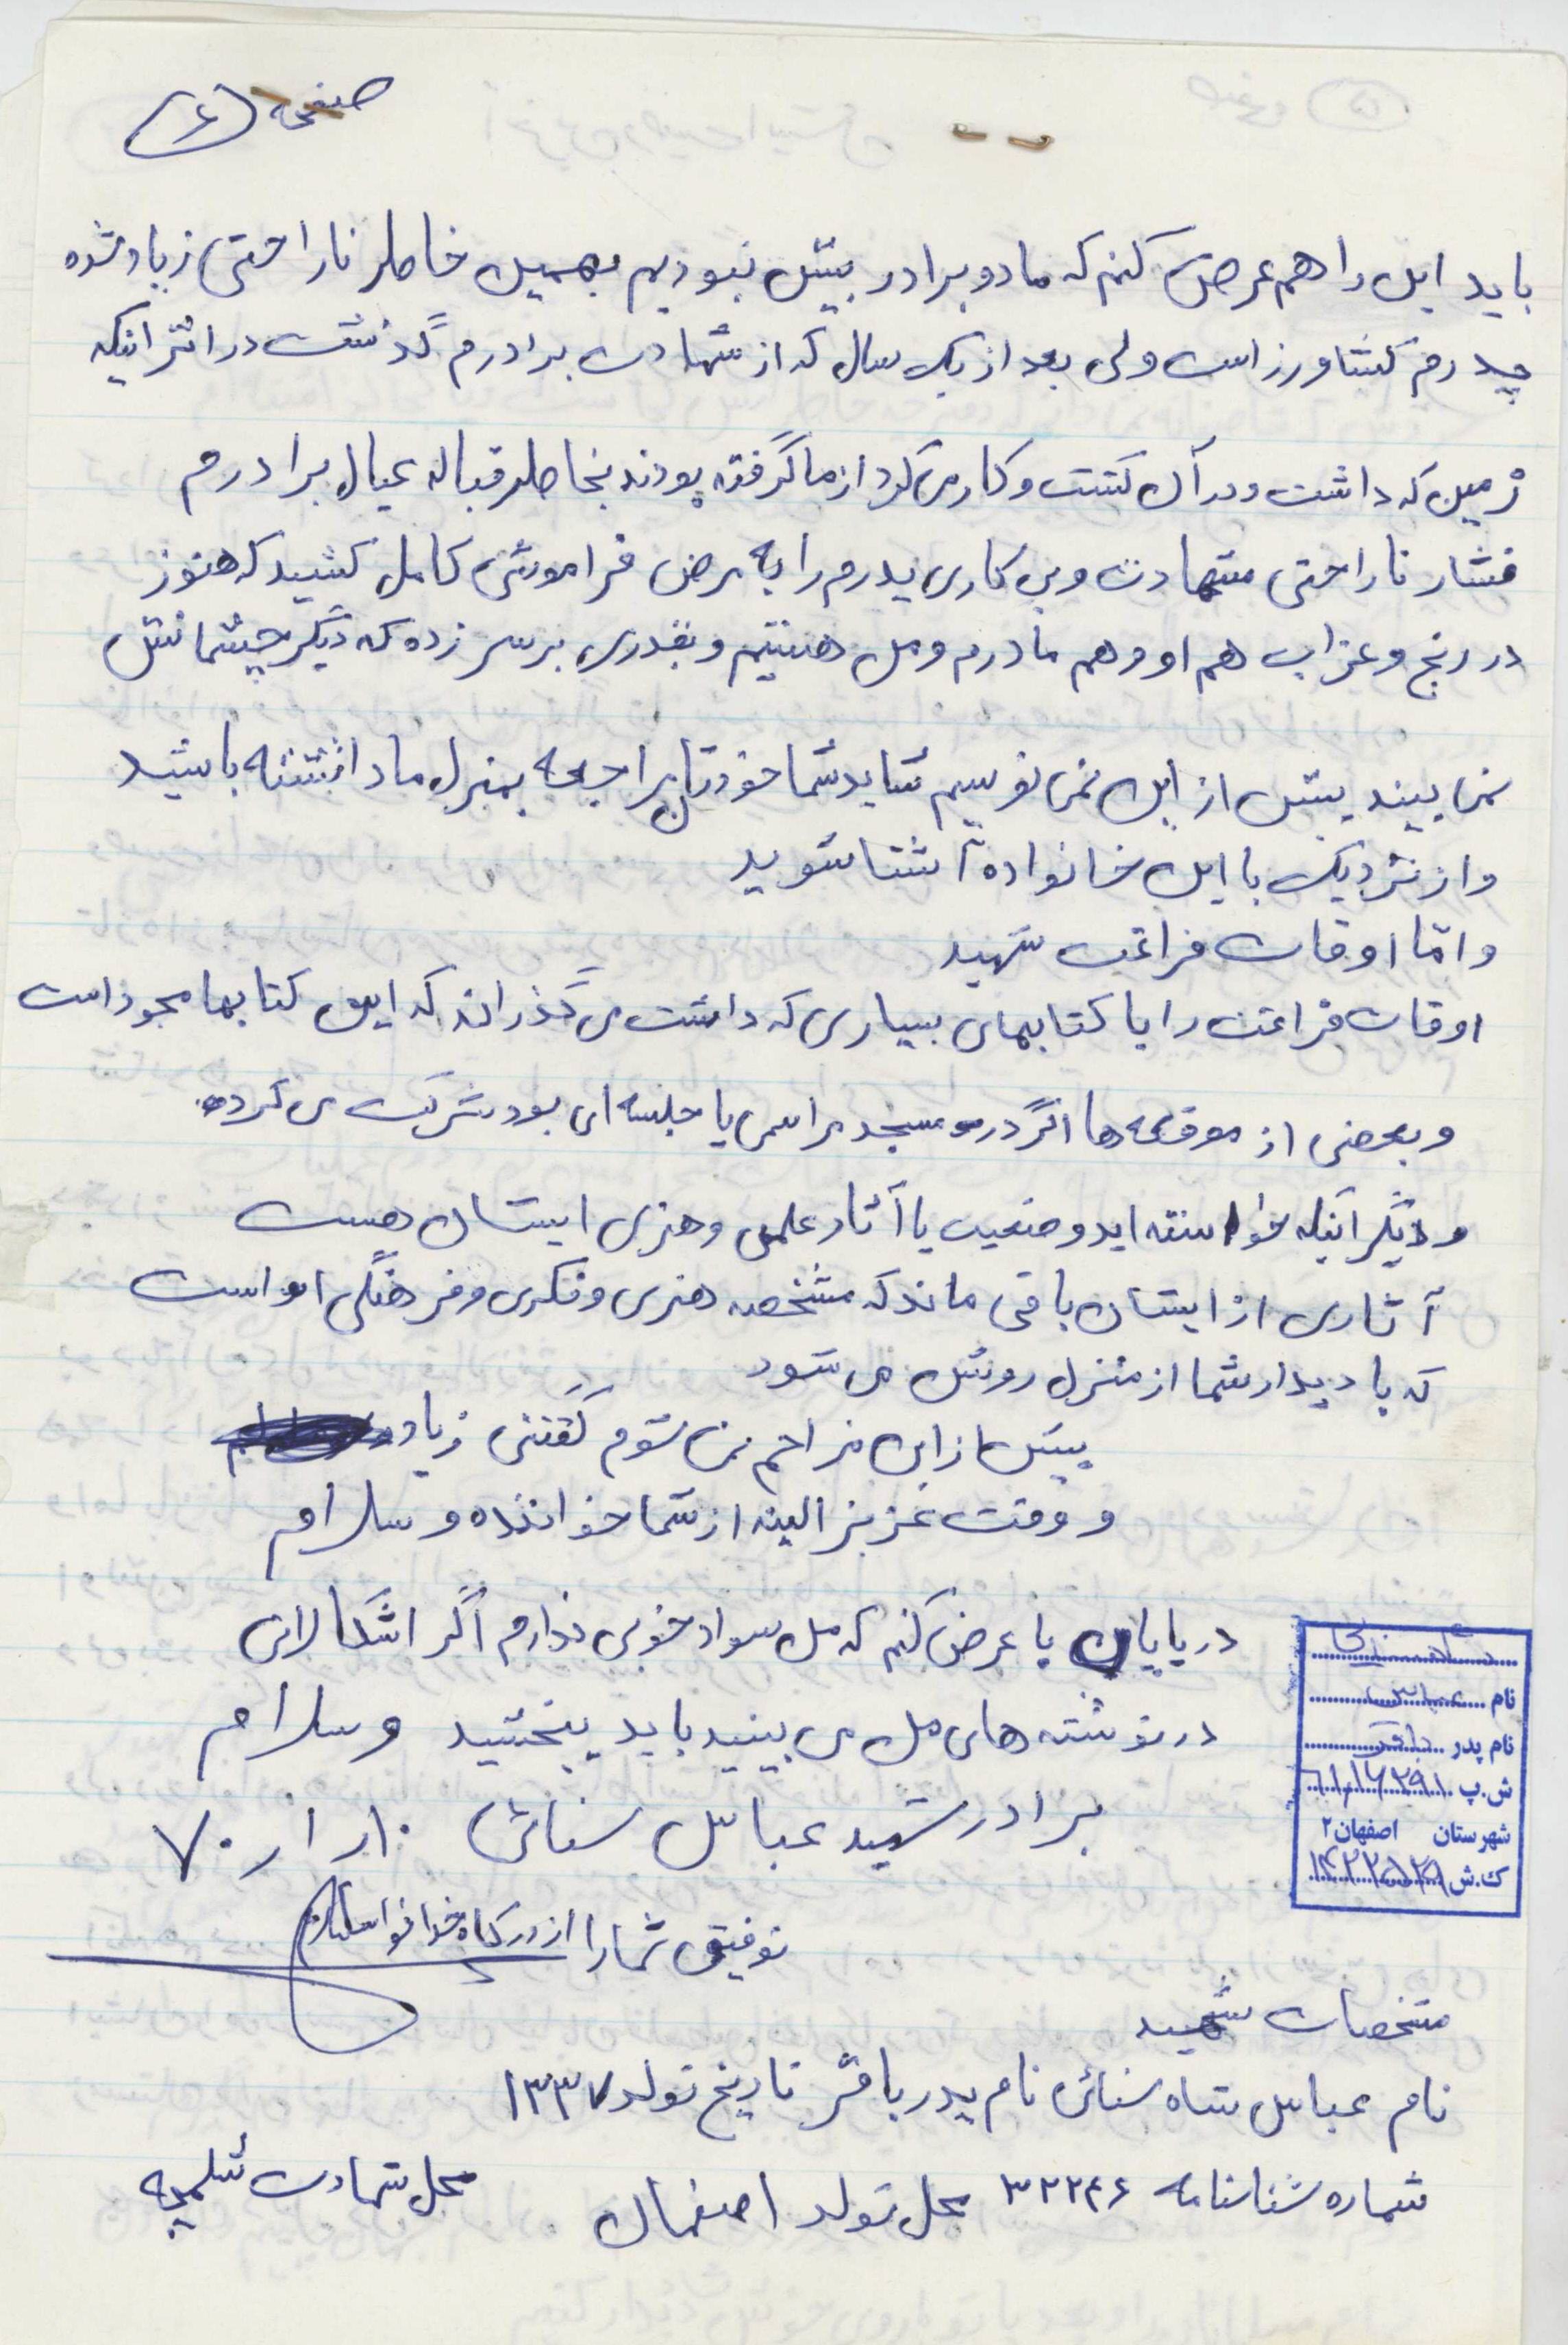 صفحه (۶)
باید این را هم عرض کنم که ما دو برادر بیش نبودیم بهمین خاطر ناراحتی زیاد شده
پدرم کشاورز است ولی بعد از یک سال که از شهادت برادرم گذشت در اثر اینکه
زمین که داشت و در آن کشت و کار می کرد از ما گرفته بودند بخاطر قباله عیال برادرم
فشار ناراحتی شهادت و بی کاری پدرم را به مرض فراموشی کامل کشید که هنوز
در رنج و عزاب هم او و هم مادرم و من هستیم و بقدری بر سر زده که دیگر چشمانش
نمی بیند بیش از این نمی نویسم شاید شما خودتان مراجعه بمنزل ما داشته باشید
و از نزدیک با این خانواده آشنا شوید
و امّا اوقات فراغت شهید
اوقات فراغت را با کتابهای بسیاری که داشت می گذراند که این کتابها مجود است
و بعضی از موقعه ها اگر در مسجد مراسمی یا جلسه ای بود شرکت می کرده
و دیگر اینکه خواسته اید وضعیت یا آثار علمی و هنری ایشان هست
آثاری از ایشان باقی ماند که مشخصه هنری و فکری و فرهنگی او است
که با دیدار شما از منزل روشن می شود
بیش از این مزاحم نمی شوم گفتنی زیاد
و وقت عزیز البته از شما خواننده و سلام
در پایان یا عرض کنم که من سواد خوبی ندارم اگر اشکالاتی
در نوشته های من می بینید باید ببخشید و سلام
برادر شهید عباس سنائی ۷۰/۱/۱۰
توفیق شما را از درگاه خدا خواستارم
شاه سنائی
نام عباس
نام پدر باقر
ش.پ
شهرستان اصفهان ۲
ک.ش
مشخصات شهید
نام عباس شاه سنائی نام پدر باقر تاریخ تولد ۱۳۳۷
شماره شناسنامه ۳۲۲۴۶ محل تولد اصفهان محل شهادت شلمچه